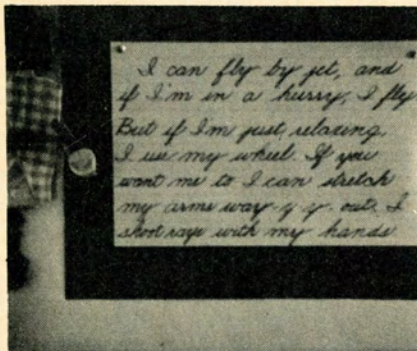 I can fly by jet, and
if I'm in a hurry, I fly
But if I'm just relaxing,
I use my wheel. If you
want me to I can stretch
my arms way-y-y. out. I
shoot rays with my hands